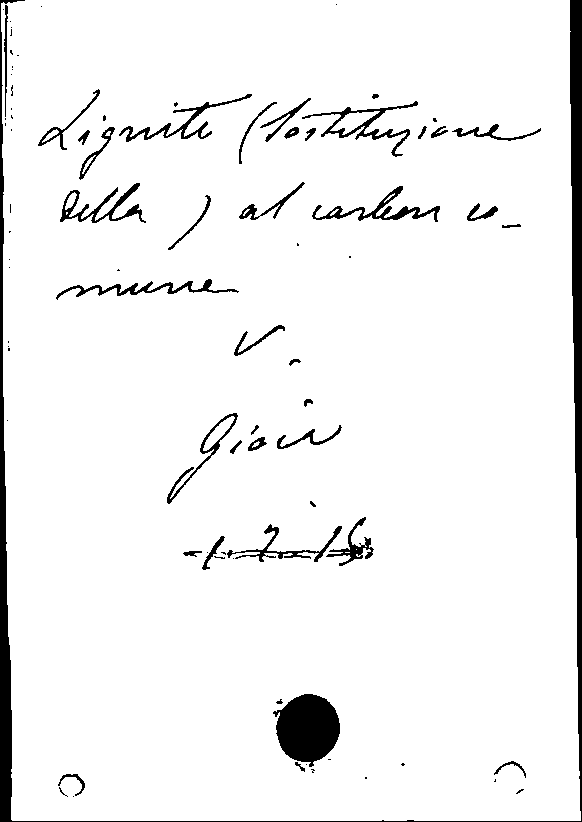 Lignite (Sostituzione
della ) al carbon co-
mune
V.
Gioia
1.7.15